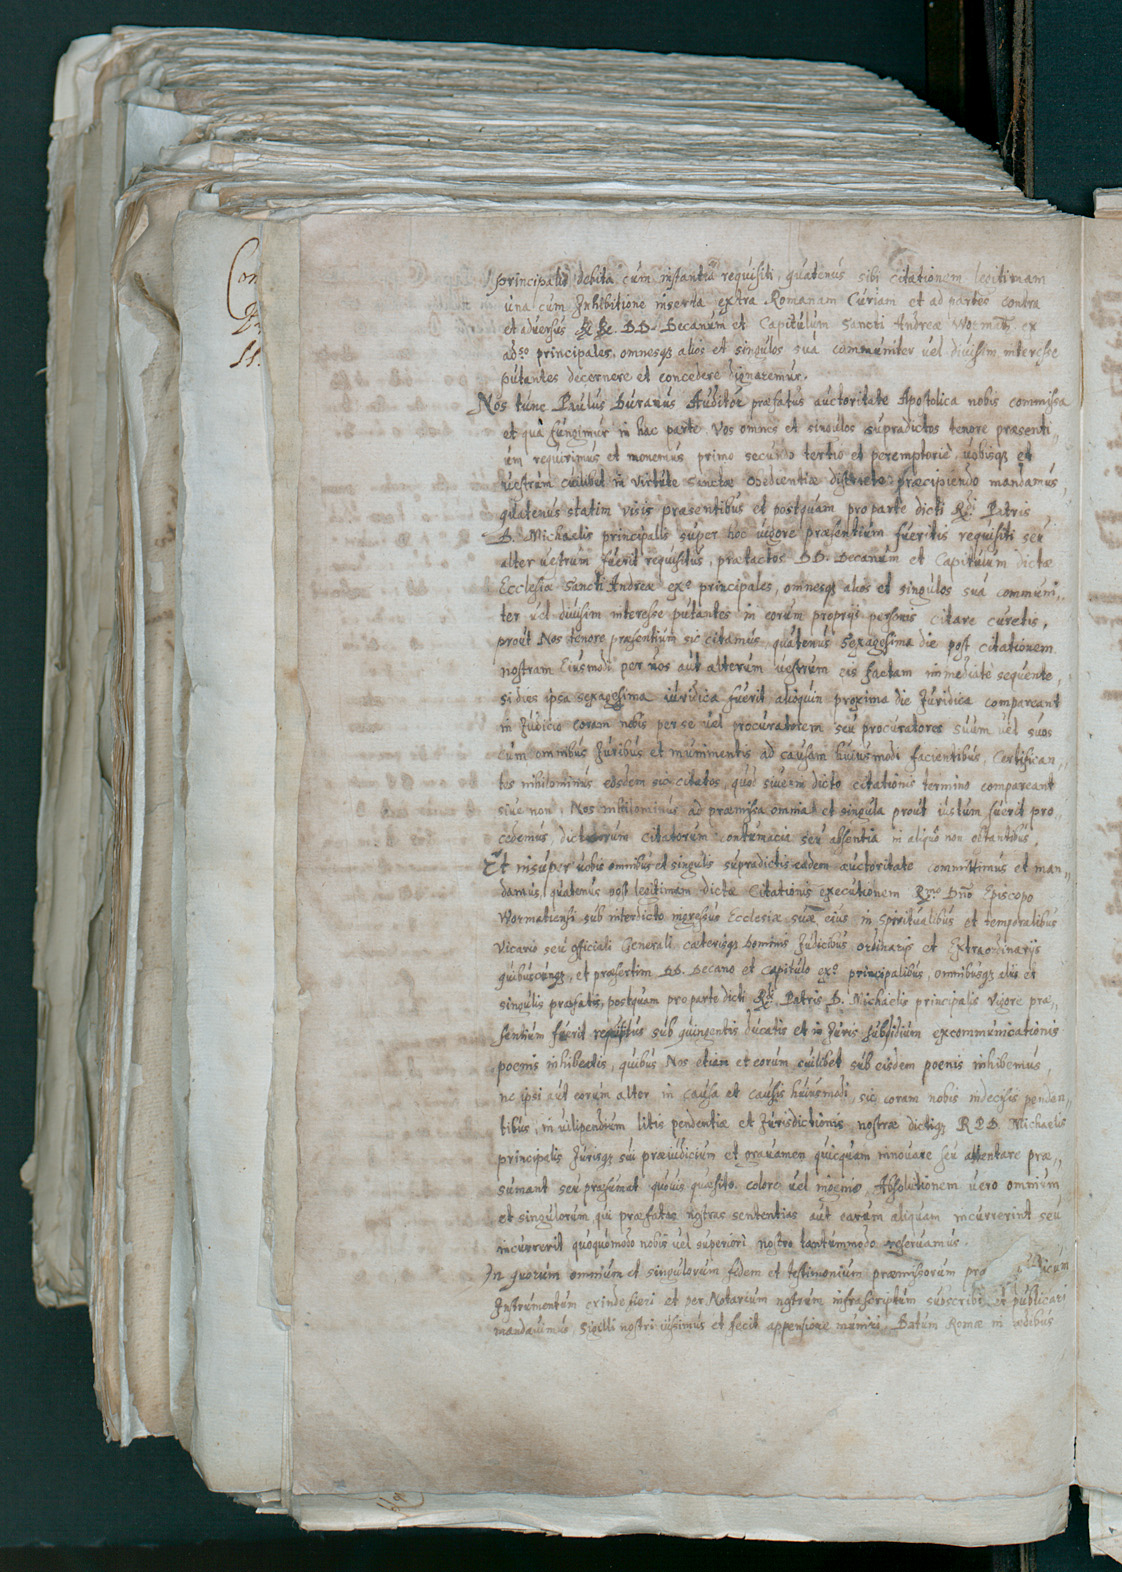 Con
principalis debita cum instantia requisiti, quatenus sibi citationem legitimam
una cum Inhibitione inserta extra Romanam Curiam et ad partes contra
et adversus DD. Decanum et Capitulum Sancti Andreæ Wormat. ex
adso principales, omnesq alios et singulos sua communiter vel divisim interesse
putantes decernere et concedere dignaremur.
Nos tunc Paulus Duranus Auditor præfatus auctoritate Apostolica nobis commissa
et qua fungimur in hac parte, Vos omnes et singulos supradictos tenore præsenti,,
um requirimus et monemus primo secundo tertio et peremptorie, vobisq et
vestrum cuilibet in virtute sanctæ obedientiæ districte præcipiendo mandamus,
quatenus statim visis præsentibus et postquam pro parte dicti Rdi Patris
D. Michaelis principalis super hoc vigore præsentium fueritis requisiti seu
alter vestrum fuerit requisitus, prætactos DD. Decanum et Capitulum dictæ
Ecclesiæ Sancti Andreæ exo principales, omnesq alios et singulos sua communi,,
ter vel divisim interesse putantes in eorum proprijs personis citare curetis,
prout Nos tenore præsentium sic citamus, quatenus Sexagesima die post citationem
nostram Eiusmodi per vos aut alterum vestrum eis factam immediate sequente,
si dies ipsa sexagesima iuridica fuerit, alioquin proxima die Juridica compareant
in Judicio coram nobis per se vel procuratorem seu procuratores suum vel suos
cum omnibus Juribus et munimentis ad causam huiusmodi facientibus, Certifican,,
tes nihilominus eosdem sic citatos, quod sive in dicto citationis termino compareant
sive non, Nos nihilominus ad præmissa omnia et singula prout iustum fuerit pro
cedemus, dictorum citatorum contumacia seu absentia in aliquo non obstantibus.
Et insuper vobis omnibus et singulis supradictis eadem auctoritate committimus et man,,
damus, quatenus post legitimam dictæ Citationis executionem Rmo Dno Episcopo
Wormatiensi sub interdicto ingressus Ecclesiæ suæ eius in Spiritualibus et temporalibus
Vicario seu officiali Generali cæterisq Dominis Judicibus ordinarijs et Extraordinarijs
quibuscunq, et præsertim DD. Decano et Capitulo exo principalibus, omnibusq alijs et
singulis præfatis, postquam pro parte dicti Rdi Patris D. Michaelis principalis vigore præ,,
sentium fuerit requisitus sub quingentis ducatis et in Juris subsidium excommunicationis
poenis inhibeatis, quibus Nos etiam et eorum cuilibet sub eisdem poenis inhibemus,
ne ipsi aut eorum alter in causa et causis huiusmodi, sic coram nobis indecisis penden,,
tibus, in vilipendium litis pendentiæ et Jurisdictionis nostræ dictiq R.P.D. Michaelis
principalis Jurisq sui præiudicium et gravamen quicquam innovare seu attentare præ,,
sumant seu præsumat quovis quæsito colore vel ingenio, Absolutionem vero omnium
et singulorum qui præfatas nostras sententias aut earum aliquam incurrerint seu
incurrerit quoquomodo nobis vel superiori nostro tantummodo reservamus.
In quorum omnium et singulorum fidem et testimonium præmissorum
Instrumentum exinde fieri et per Notarium nostrum infrascriptum subscribi et publicari
mandavimus, Sigilli nostri iussimus et fecit appensione muniri. Datum Romæ in ædibus